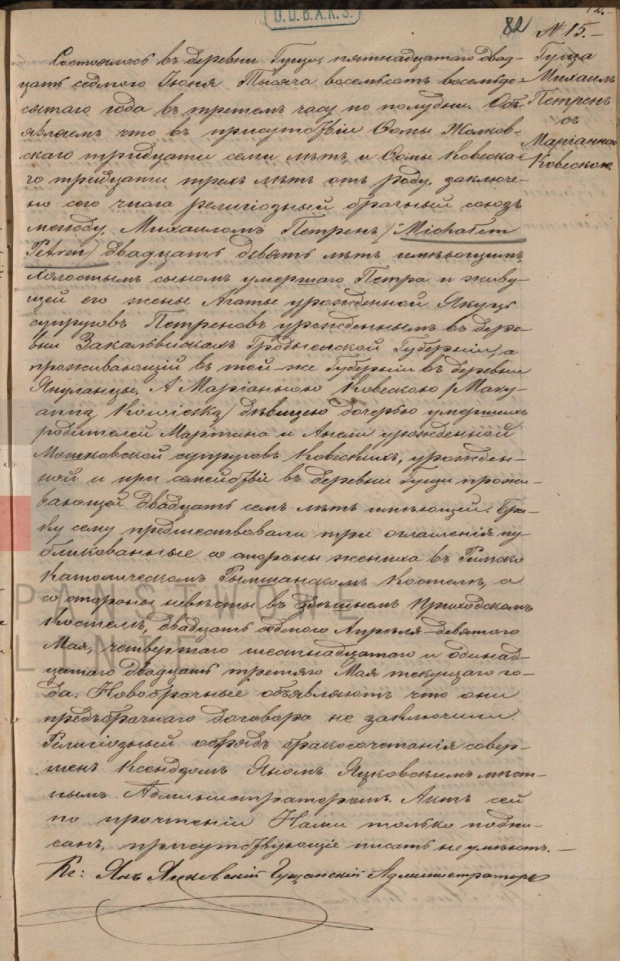 O.D.B.X.K.S.
82
№ 15.–
Гуща
Михаилъ
Петренъ
съ
Маріанною
Ковескою
Состоялось въ деревни Гущѣ, пятнадцатаго двад-
цать седмого Іюня Тысяча восемьсотъ восемьде-
сятаго года въ третемъ часу по полудни. Объ
являемъ что въ присутствіи Ѳомы Жолков-
скаго тридцати семи лѣтъ, и Ѳомы Ковеска-
го тридцати трехъ лѣтъ отъ роду, заключе-
но сего числа религіозный брачный союзъ
между Михаиломъ Петренъ /Michałem
Petren/ двадцать девять лѣтъ имѣющимъ
холостымъ сыномъ умершаго Петра и живу-
щей его жены Агаты урожденной Якуць
супруговъ Петреновъ урожденнымъ въ дере-
вни Закальвискахъ Гродненской Губерніи, а
проживающій въ той-же Губерніи въ деревни
Януланцы. А Маріанною Ковескою /Мary-
anną Kowieską/ дѣвицею дочерью умершихъ
родителей Мартина и Анели урожденной
Мошковской супруговъ Ковескихъ, урожден-
ной и при семействѣ въ деревни Гущи прожи-
вающей двадцать семь лѣтъ имѣющей. Бра-
ку сему предшествовали три оглашенія пу-
бликованные со стороны жениха въ Римско
Католическомъ Костелѣ, а
со стороны невѣсты въ здѣшнемъ Приходскомъ
Костелѣ, двадцать седмого Апрѣля девятого
Мая, четвертаго шестнадцатаго и одинад-
цатаго двадцать третяго Мая текущаго го-
да. Новобрачные объявляютъ что они
предъбрачнаго договора не заключили.
Религіозный обрядъ бракосочетанія совер-
шенъ Ксендзомъ Яномъ Яцковскимъ мѣст-
нымъ Администраторомъ. Актъ сей
по прочтеніи Нами только подпи-
санъ, присутствующіе писать не умѣютъ.–
Кс: Янъ Яцковскій Гущанскій Администраторъ
PAŃSTWOWE